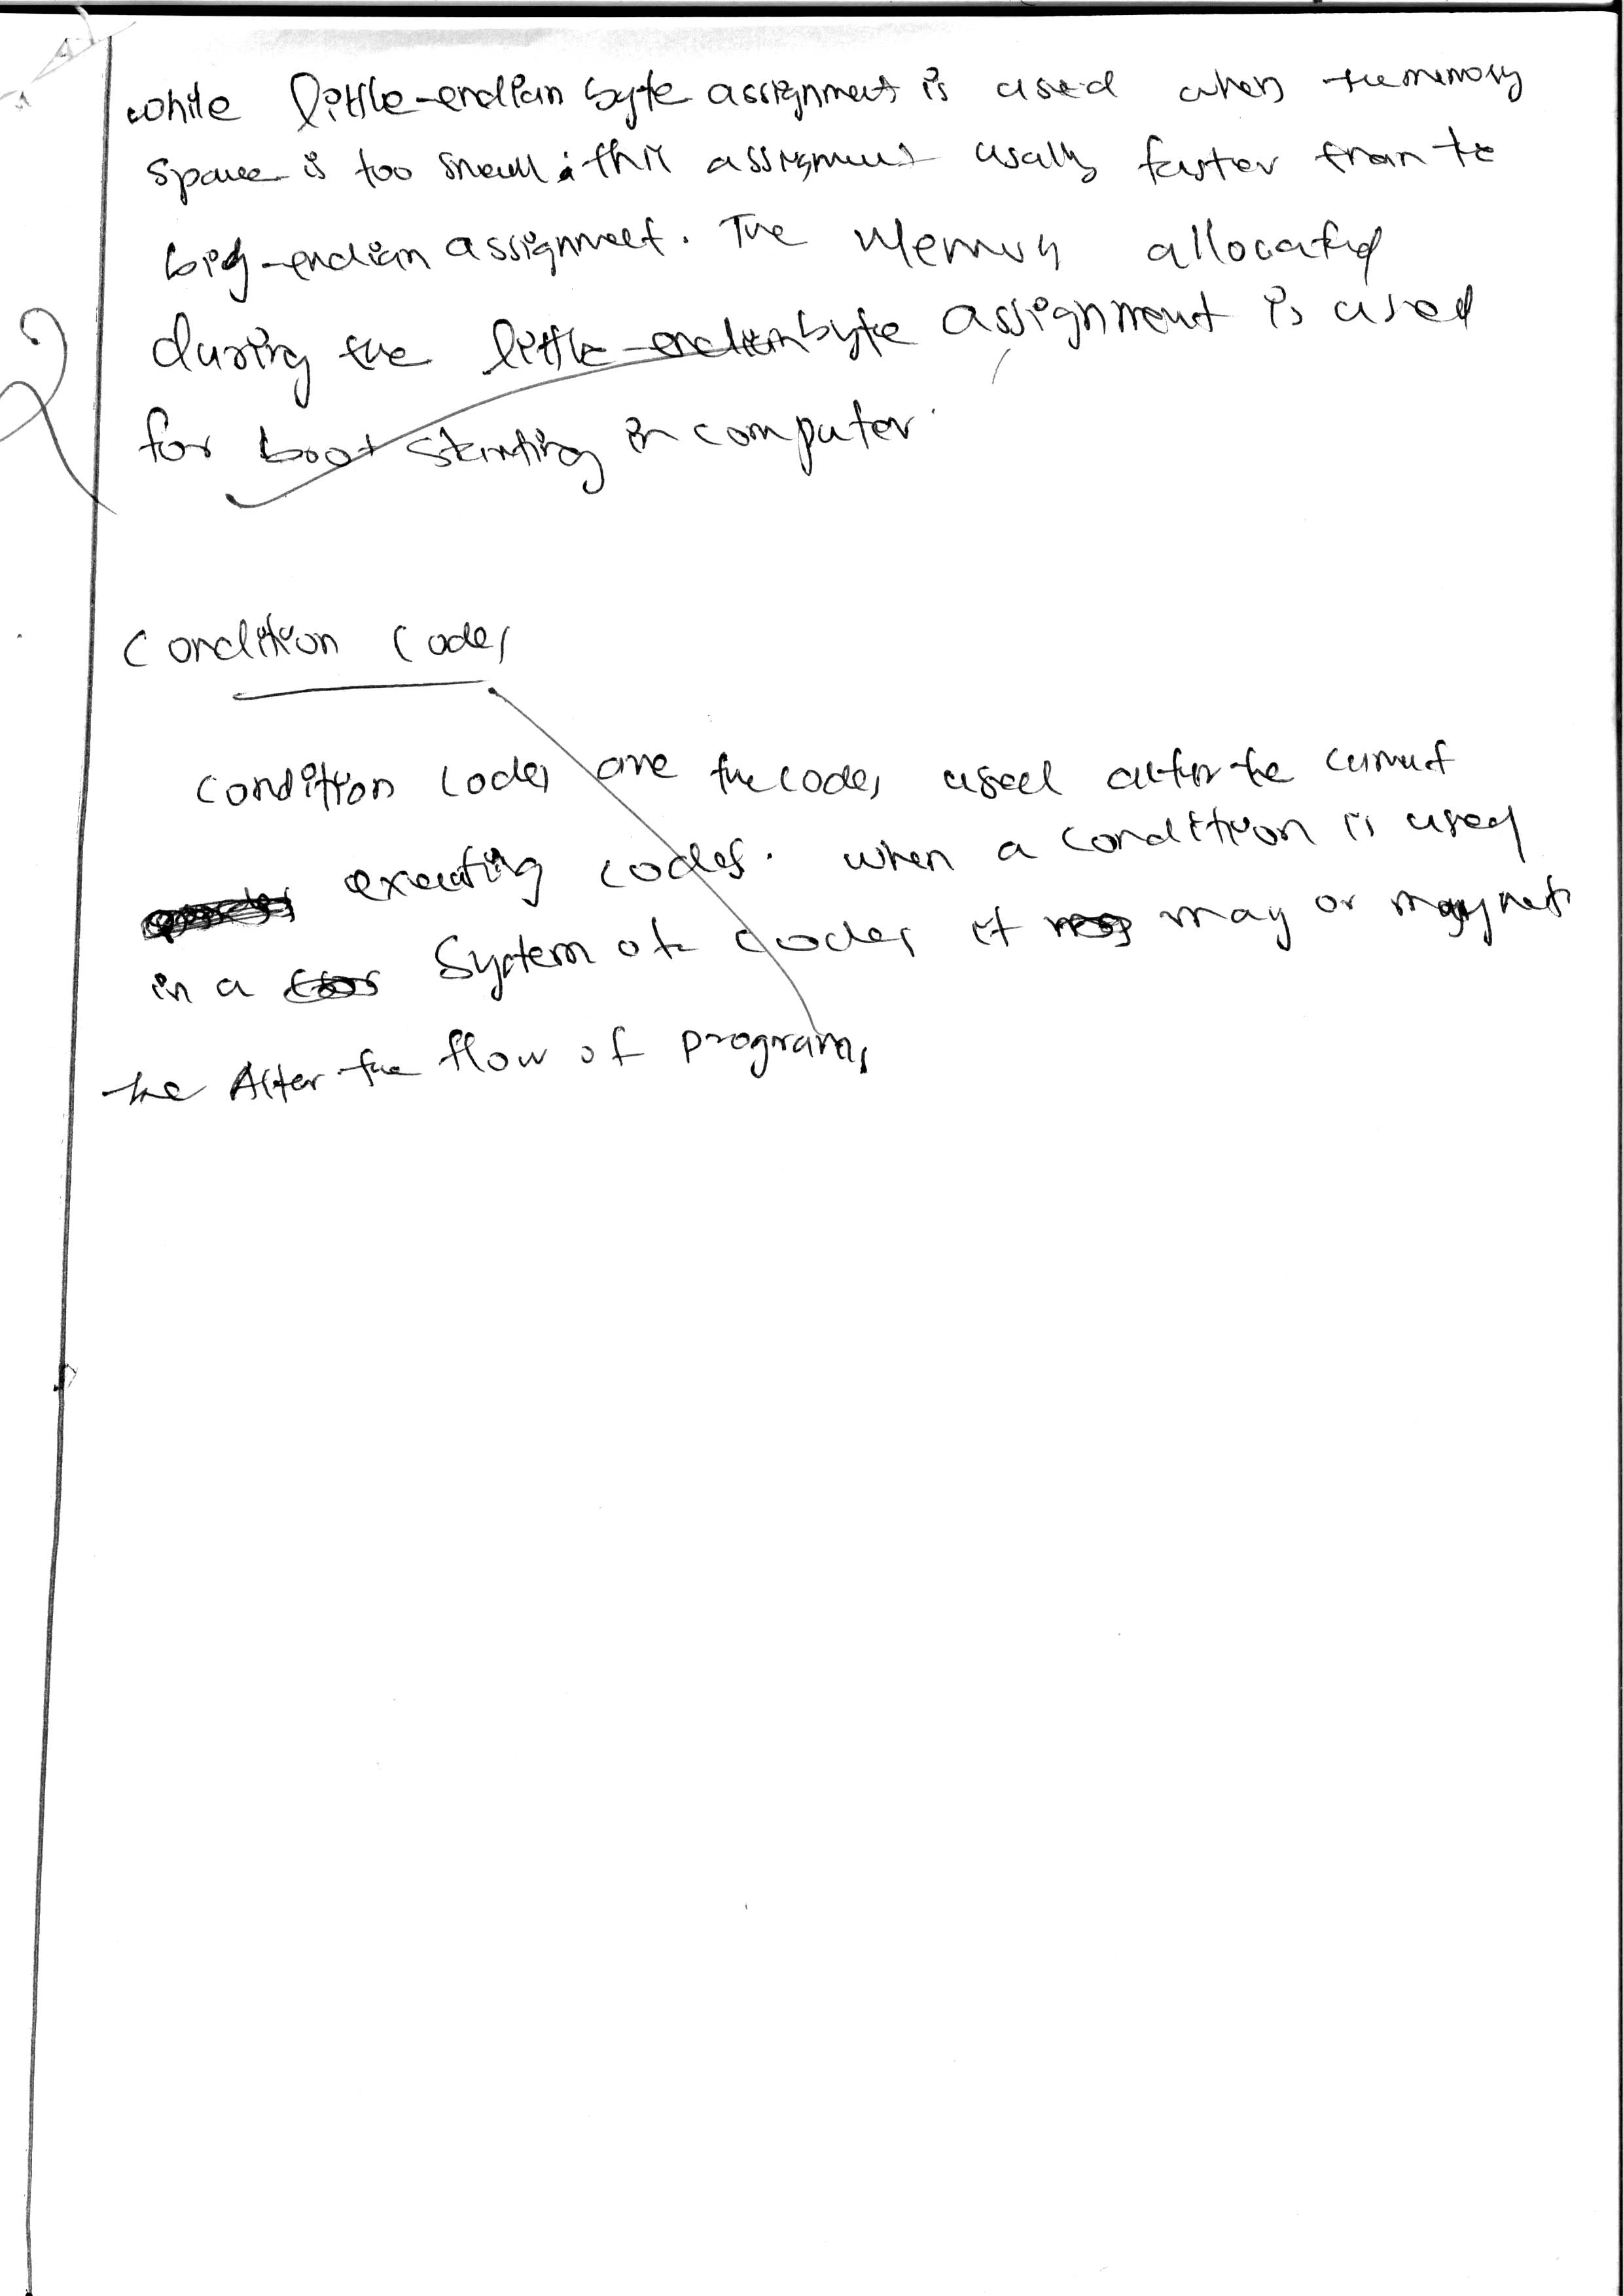 while little-endian byte assignment is used when the memory
space is too small. this assignment usally faster from te
big-endian assignment. The Memory allocated
during the little-endian byte assignment is used
for boot starting in computer.
2
Condition Codes
Condition Codes are the codes used after the current
executing codes. when a condition is used
in a System of codes it may or may not
the Alter the flow of programs